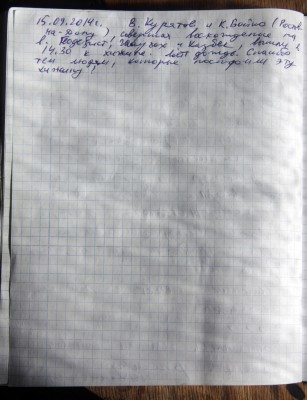 15.09.2014г. В. Куратов, и К. Бойко (Ростов
на-Дону), совершили восхождение на
в. вышли в
14.30 к хижине. дождь. Спасибо
тем людям, которые построили эту
хижину!